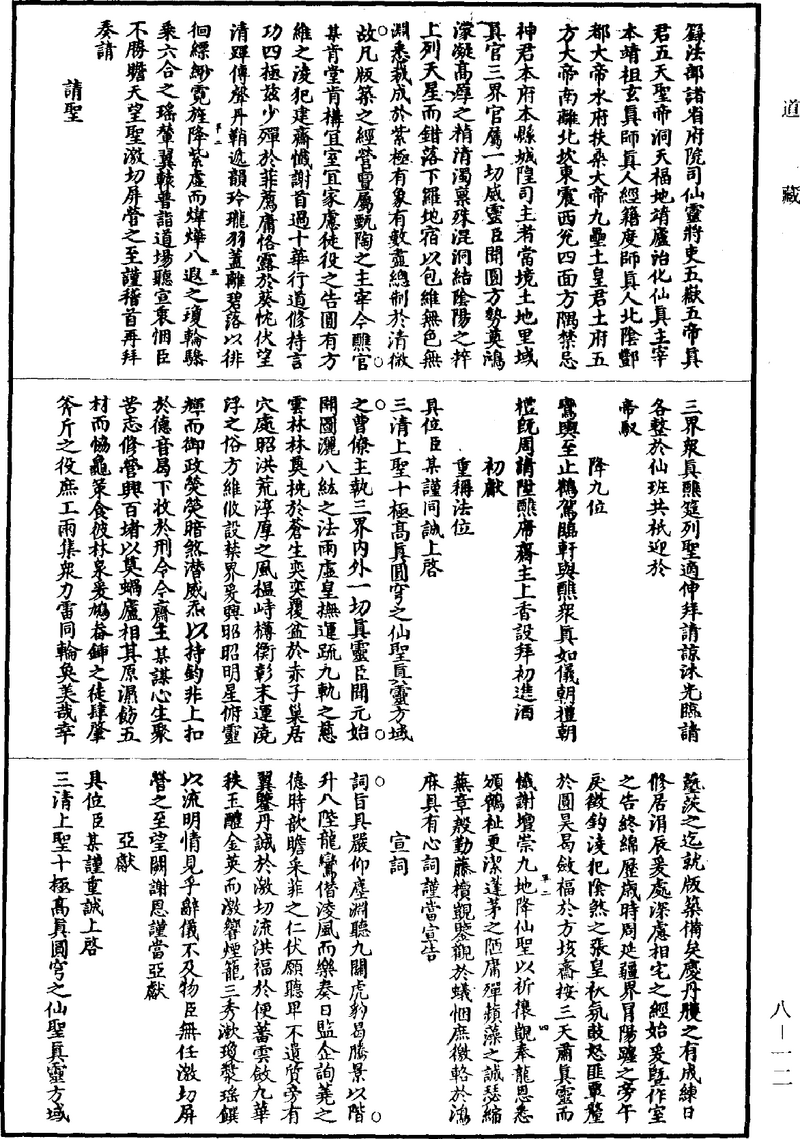 道藏
籙法部諸省府院司仙靈將吏五嶽五帝真
君五天聖帝洞天福地靖廬治化仙真主宰
本靖祖玄真師真人經籍度師真人北陰酆
都大帝水府扶桑大帝九壘土皇君土府五
方大帝南離北坎東震西兌四面方隅禁忌
神君本府本縣城隍司主者當境土地里域
真官三界官屬一切威靈臣聞圓方勢奠鴻
濛凝高厚之精清濁稟殊混洞結陰陽之粹
上列天星而鉗落下羅地宿以包維無色無
淵悉裁成於紫極有象有數盡總制於清微
故凡版築之經營亶屬甄陶之主宰今醮官
某肯堂肯構宜室宜家慮徒役之告圓有方
維之淩犯建齋懺謝首過十華行道修持言
功四極玆少殫於菲薦庸恪露於葵忱伏望
清蹕傳聲丹鞘遞韻玲瓏羽蓋離碧落以徘
徊縹緲霓旌降紫虛而煒燁八遐之瓊輪駱
乘六合之瑤輦翼轅普詣道場聽宣衷悃臣
不勝瞻天望聖激切屏營之至謹稽首再拜
奏請
請聖
三界衆真醮筵列聖適伸拜請諒沐光臨請
各整於仙班共祇迎於
帝馭
降九位
鸞輿至止鶴駕臨軒與醮衆真如儀朝禮朝
禮既周請陞醮席齋主上香設拜初進酒
初獻
重稱法位
具位臣某謹同誠上啓
三清上聖十極高真圓穹之仙聖真靈方域
之曹僚主執三界內外一切真靈臣聞元始
開圖灑八紘之法雨虛皇撫運疏九軌之慈
雲林林奠枕於蒼生奕奕覆盆於赤子巢居
穴處昭洪荒淳厚之風楹峙欂衡彰末運澆
浮之俗方維攸設禁界爰興昭昭明星俯靈
輝而御政熒熒暗煞潛威炁以持鈞非上扣
於德音曷下牧於刑令今齋主某謀心生聚
苦志修營興百堵以莫蝸廬相其原濕飭五
材而恊龜筞食彼林泉爰鳩畚鍤之徒肆肇
斧斤之役庶工雨集衆力雷同輪奐美哉幸
蓺茨之迄就版築備矣慶丹雘之有成練日
修居涓辰爰處深慮相宅之經始爰曁作室
之告終綿歷歲時周延疆界冒陽躔之旁午
戾微鈞淩犯陰煞之張皇氛敺怒匪覃釐
於圓昊曷斂福於方垓齋按三天肅真靈而
懺謝壇崇九地降仙聖以祈禳覲奉龍恩悉
頒鶴祉更潔蓬茅之陋庸殫蘋藻之誠瑟縮
蕪章毅勤藤櫝觀鑒觀於蟻悃庶檄輅於鴻
庥具有心詞謹當宣告
宣詞
詞旨具嚴仰塵淵聽九關虎豹曷騰景以階
升八陛龍鸞偕淩風而樂奏日監企詢蕘之
德時歆瞻采菲之仁伏願聽卑不遺質旁有
翼鑒丹誠於激切流洪福於便蕃雲斂九華
秩玉醴金英而激響煙籠三秀漱瓊漿瑤饌
以流明情見乎辭儀不及物臣無任激切屏
營之至望闕謝恩謹當亞獻
亞獻
具位臣某謹重誠上啓
三清上聖十極高真圓穹之仙聖真靈方域
八—一二